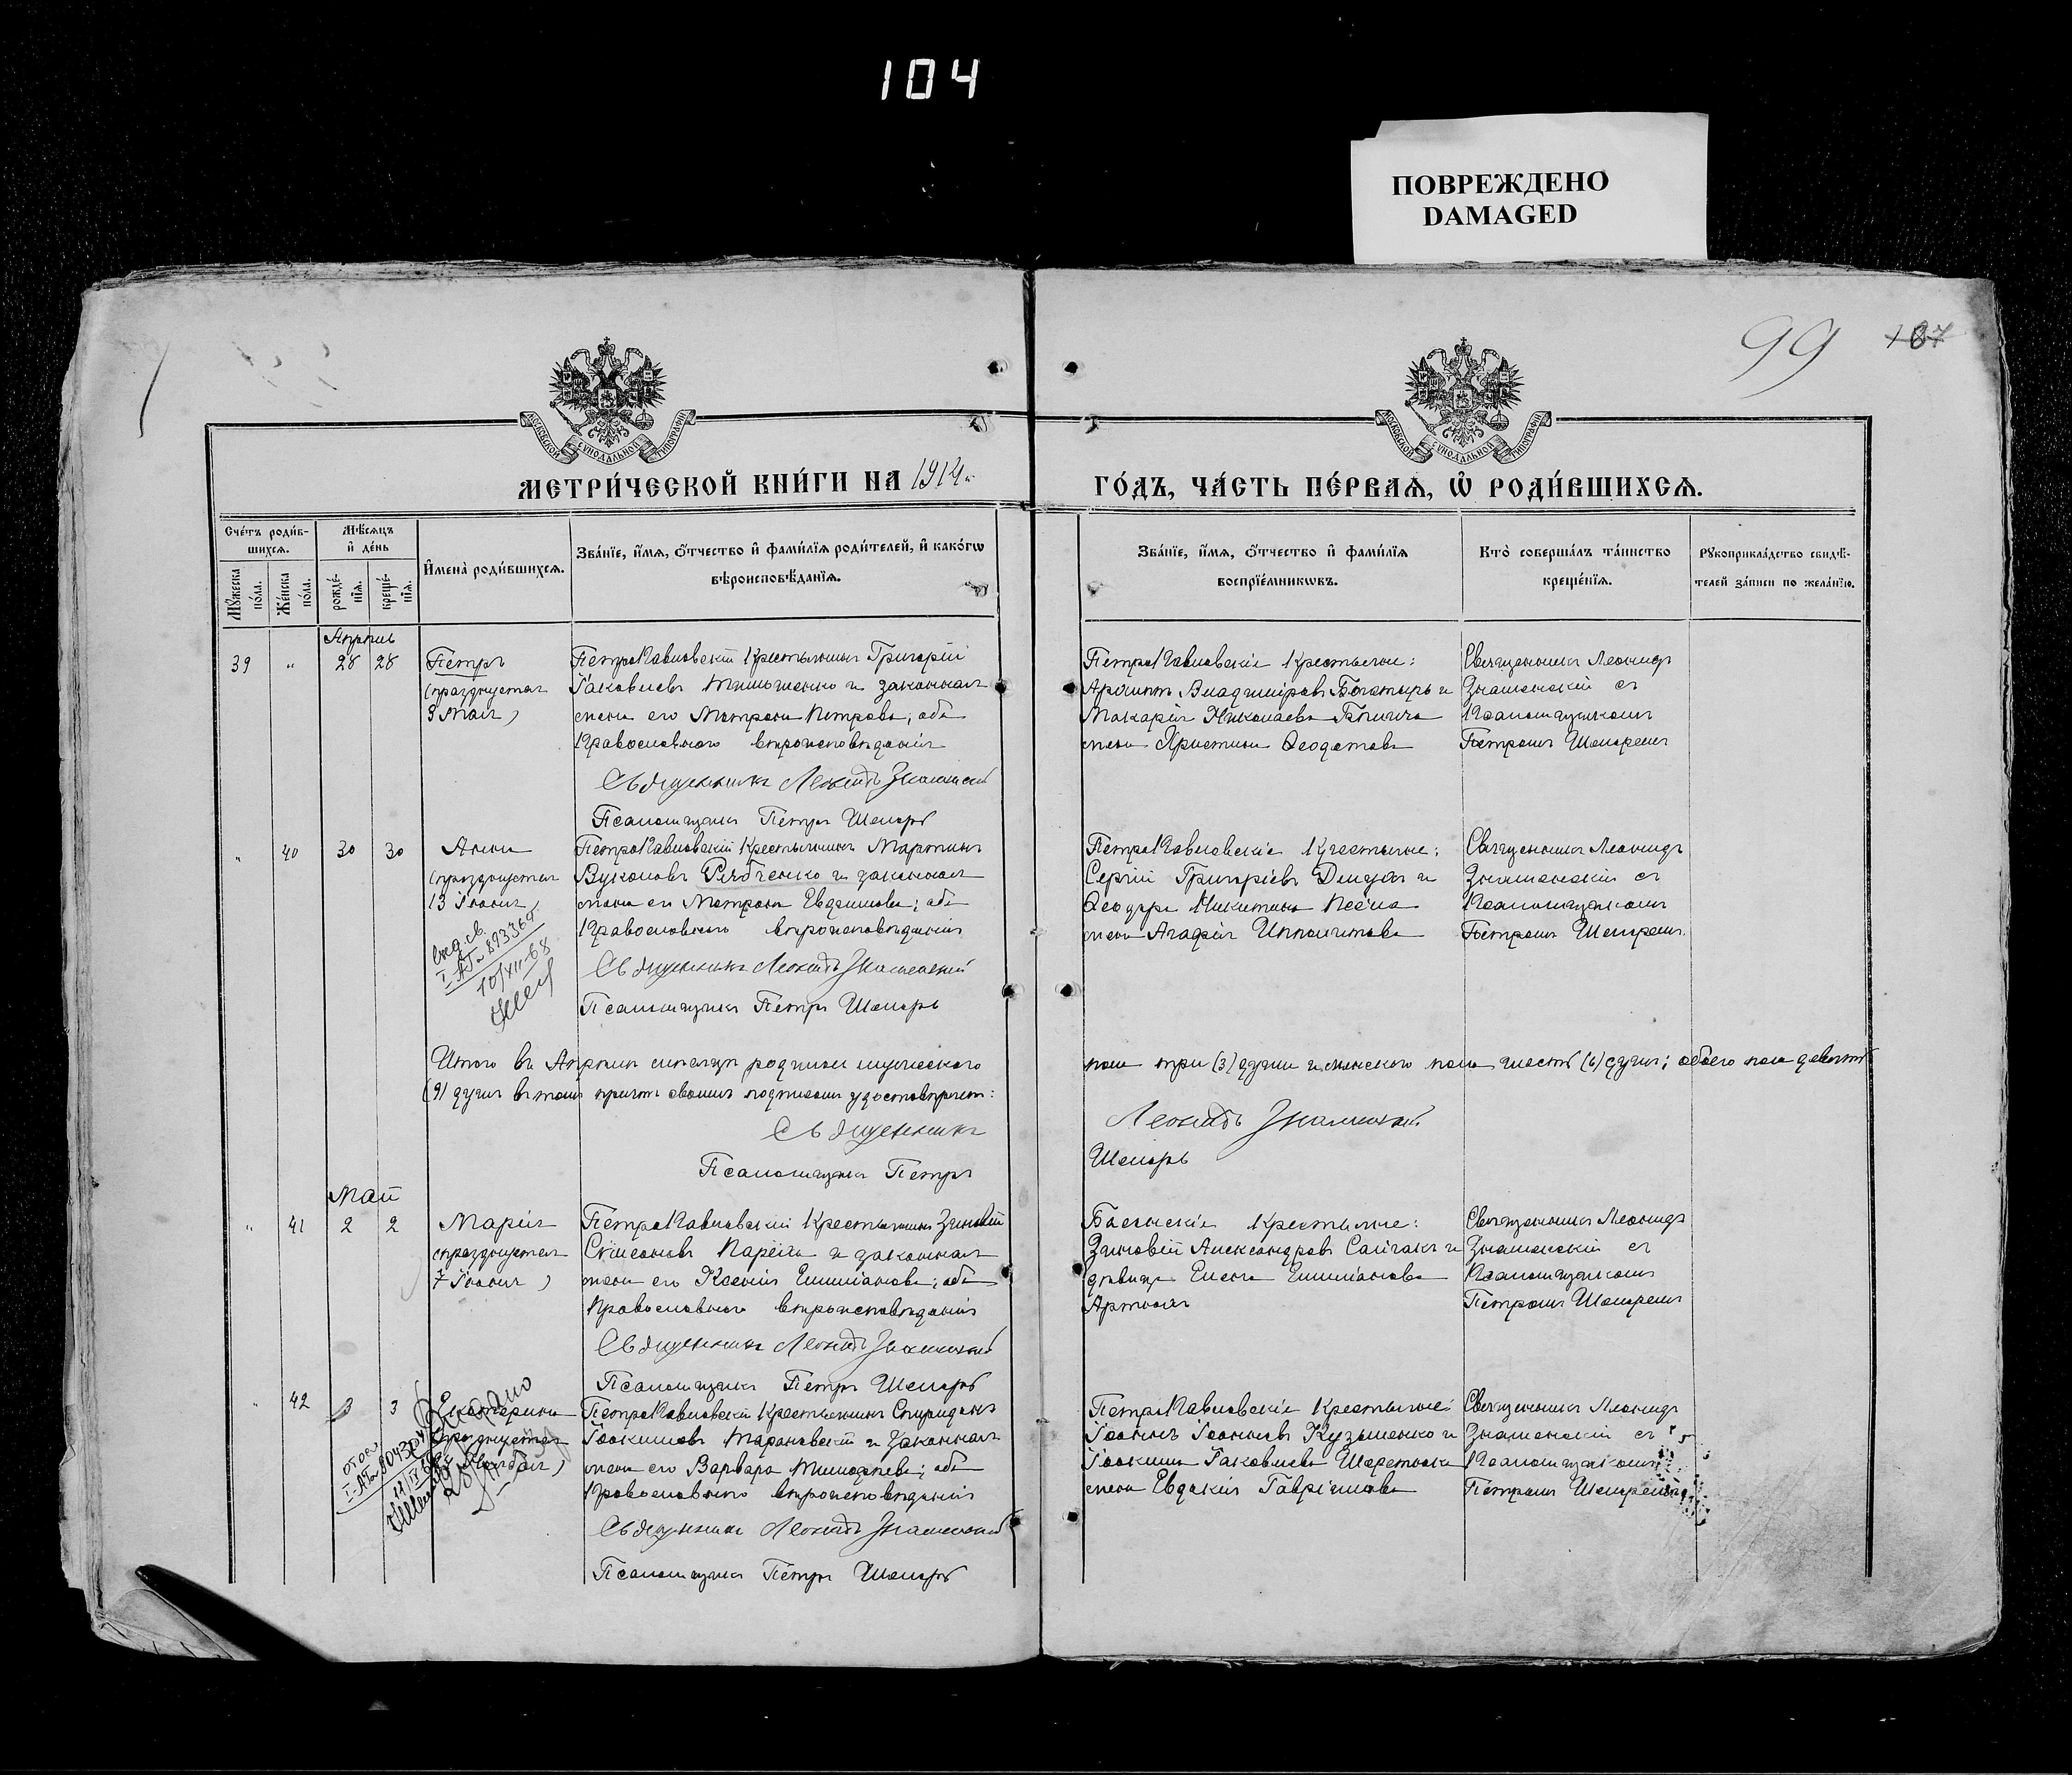 104
ПОВРЕЖДЕНО
DAMAGED
99 107
МОСКОВСКОЙ СѴНОДАЛЬНОЙ ТИПОГРАФІИ
МОСКОВСКОЙ СѴНОДАЛЬНОЙ ТИПОГРАФІИ
МЕТРИ́ЧЕСКОЙ КНИ́ГИ НА 1914
ГО́ДЪ, ЧА́СТЬ ПЕ́РВАѦ, Ѽ РОДИ́ВШИХСѦ.
Сче́тъ роди́в-
шихсѧ.
Мꙋ́жеска по́ла.
Же́нска по́ла.
Мѣ́сѧцъ
и҆ де́нь
рожде́-нїѧ.
креще́-нїѧ.
И҆мена̀ роди́вшихсѧ.
Зва́нїе, и҆́мѧ, ѻ҆́тчество и҆ фами́лїѧ роди́телей, и҆ како́гѡ
вѣроисповѣ́данїѧ.
Зва́нїе, и҆́мѧ, ѻ҆́тчество и҆ фами́лїѧ
воспрїе́мникѡвъ.
Кто̀ соверша́лъ та́инство
креще́нїѧ.
Рꙋкоприкла́дство свидѣ́-
телей за́писи по жела́нїю.
Апрѣль
39 " 28 28
Петръ
(празднуется
Петропавловскій Крестьянинъ Григорій
Іаковлевъ Тимошенко и законная
жена его Матрона Петрова; оба
Православнаго вѣроисповѣданія
Священникъ Леонидъ Знаменскій
Псаломщикъ Петръ Шенаръ
Петропавловскіе Крестьяне:
Владиміровъ Богатырь и
Макарія Николаева
жена Христина Ѳеодотова
Священникъ Леонидъ
Знаменскій съ
Псаломщикомъ
Петромъ
" 40 30 30
Анна
(празднуется
13 Іюня)
Петропавловскій Крестьянинъ Мартинъ
Вуколовъ Рябченко и законная
жена его Матрона Евфимова; оба
Православнаго вѣроисповѣданія
Священникъ Леонидъ Знаменскій
Псаломщикъ Петръ
Петропавловскіе Крестьяне:
Сергій Григоріевъ и
Ѳеодора Никитина
жена Агафія Ипполитова
Священникъ Леонидъ
Знаменскій съ
Псаломщикомъ
Петромъ
10/XII-68
Итого въ Апрѣлѣ мѣсяцѣ родилось мужескаго
пола три (3) души и женскаго пола шесть (6) душъ; обоего пола девять
(9) душъ въ томъ причтъ своимъ подписомъ удостовѣряетъ:
Священникъ
Леонидъ Знаменскій
Псаломщикъ Петръ
Май
" 41 2 2
Марія
(празднуется
Іюня)
Петропавловскій Крестьянинъ Зиновій
Симеоновъ и законная
жена его Ксенія Емиліанова; оба
Православнаго вѣроисповѣданія
Священникъ Леонидъ Знаменскій
Псаломщикъ Петръ
Крестьяне:
Зиновій Александровъ Сайгакъ и
дѣвица Елена Емиліанова
Священникъ Леонидъ
Знаменскій съ
Псаломщикомъ
Петромъ
" 42 3 3
Екатерина
(празднуется
Петропавловскій Крестьянинъ Спиридонъ
Іоакимовъ Тарановскій и законная
жена его Варвара Тимофеева; оба
Православнаго вѣроисповѣданія
Священникъ Леонидъ Знаменскій
Псаломщикъ Петръ
Петропавловскіе Крестьяне:
Іоаннъ Іоанновъ Кузьменко и
Іоакима Іаковлева
жена Евдокія Гавріилова
Священникъ Леонидъ
Знаменскій съ
Псаломщикомъ
Петромъ